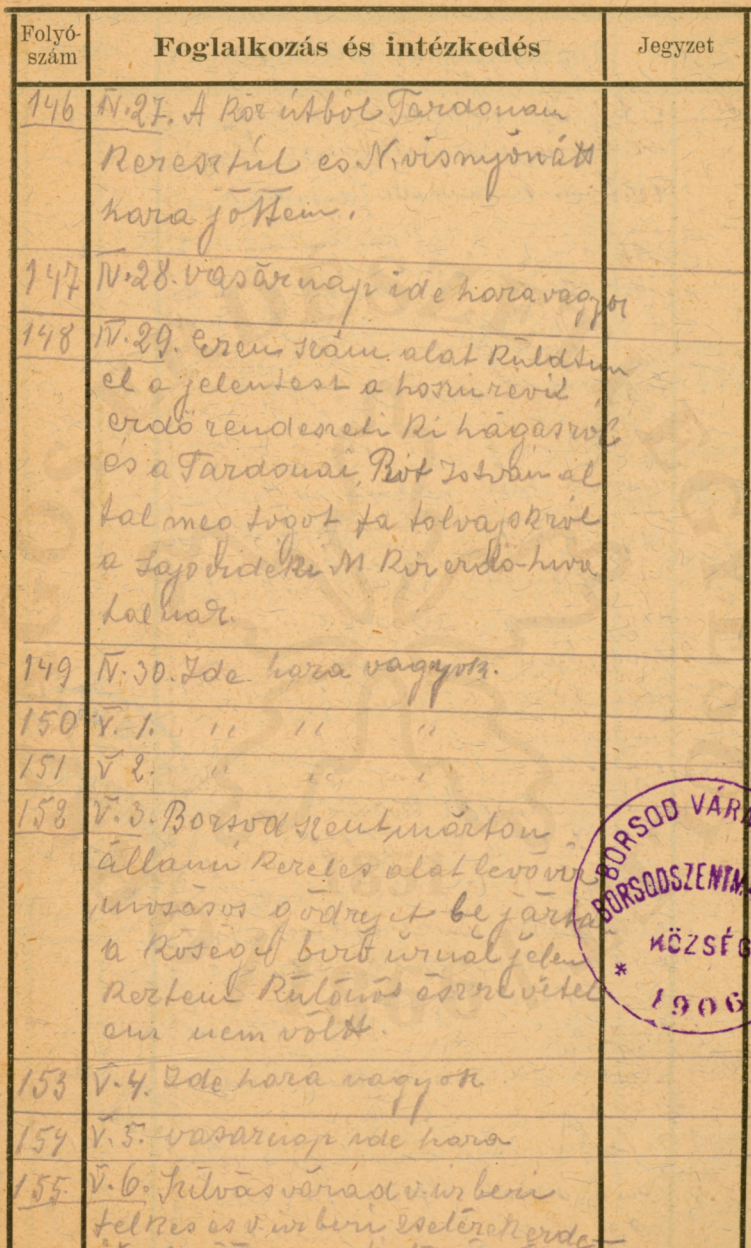 Folyó-
szám
Foglalkozás és intézkedés
Jegyzet
146 IV.27. A Kör útból Tardonán
Keresztül es N.visnyón átt
haza jöttem.
147 IV.28. vasárnap ide haza vagyok
148 IV.29. Ezen szám alat Küldtem
el a jelentest a
erdő rendeszeti Ki hágásról
és a Tardonai István ál
tal meg fogot fa tolvajokról
a Sajóvidéki M Kir erdő-hiva
talnak.
149 IV.30. Ide haza vagyok.
150 V.1. " " "
151 V 2. " " "
152 V.3. Borsodszentmárton
állami Kezeles alat levő víz
mosásos gödrjet be jártam
a Kösegi biró úrnál jelen
Keztem Külonös észre vétel
em nem vóltt.
153 V.4. Ide haza vagyok
154 V.5. vasarnap ide haza
155. V.6. Szilvásvárad v. urberi
telkes es v. urberi zsellérek erde
BORSOD VÁRM
BORSODSZENTM
KÖZSÉG
* 1906